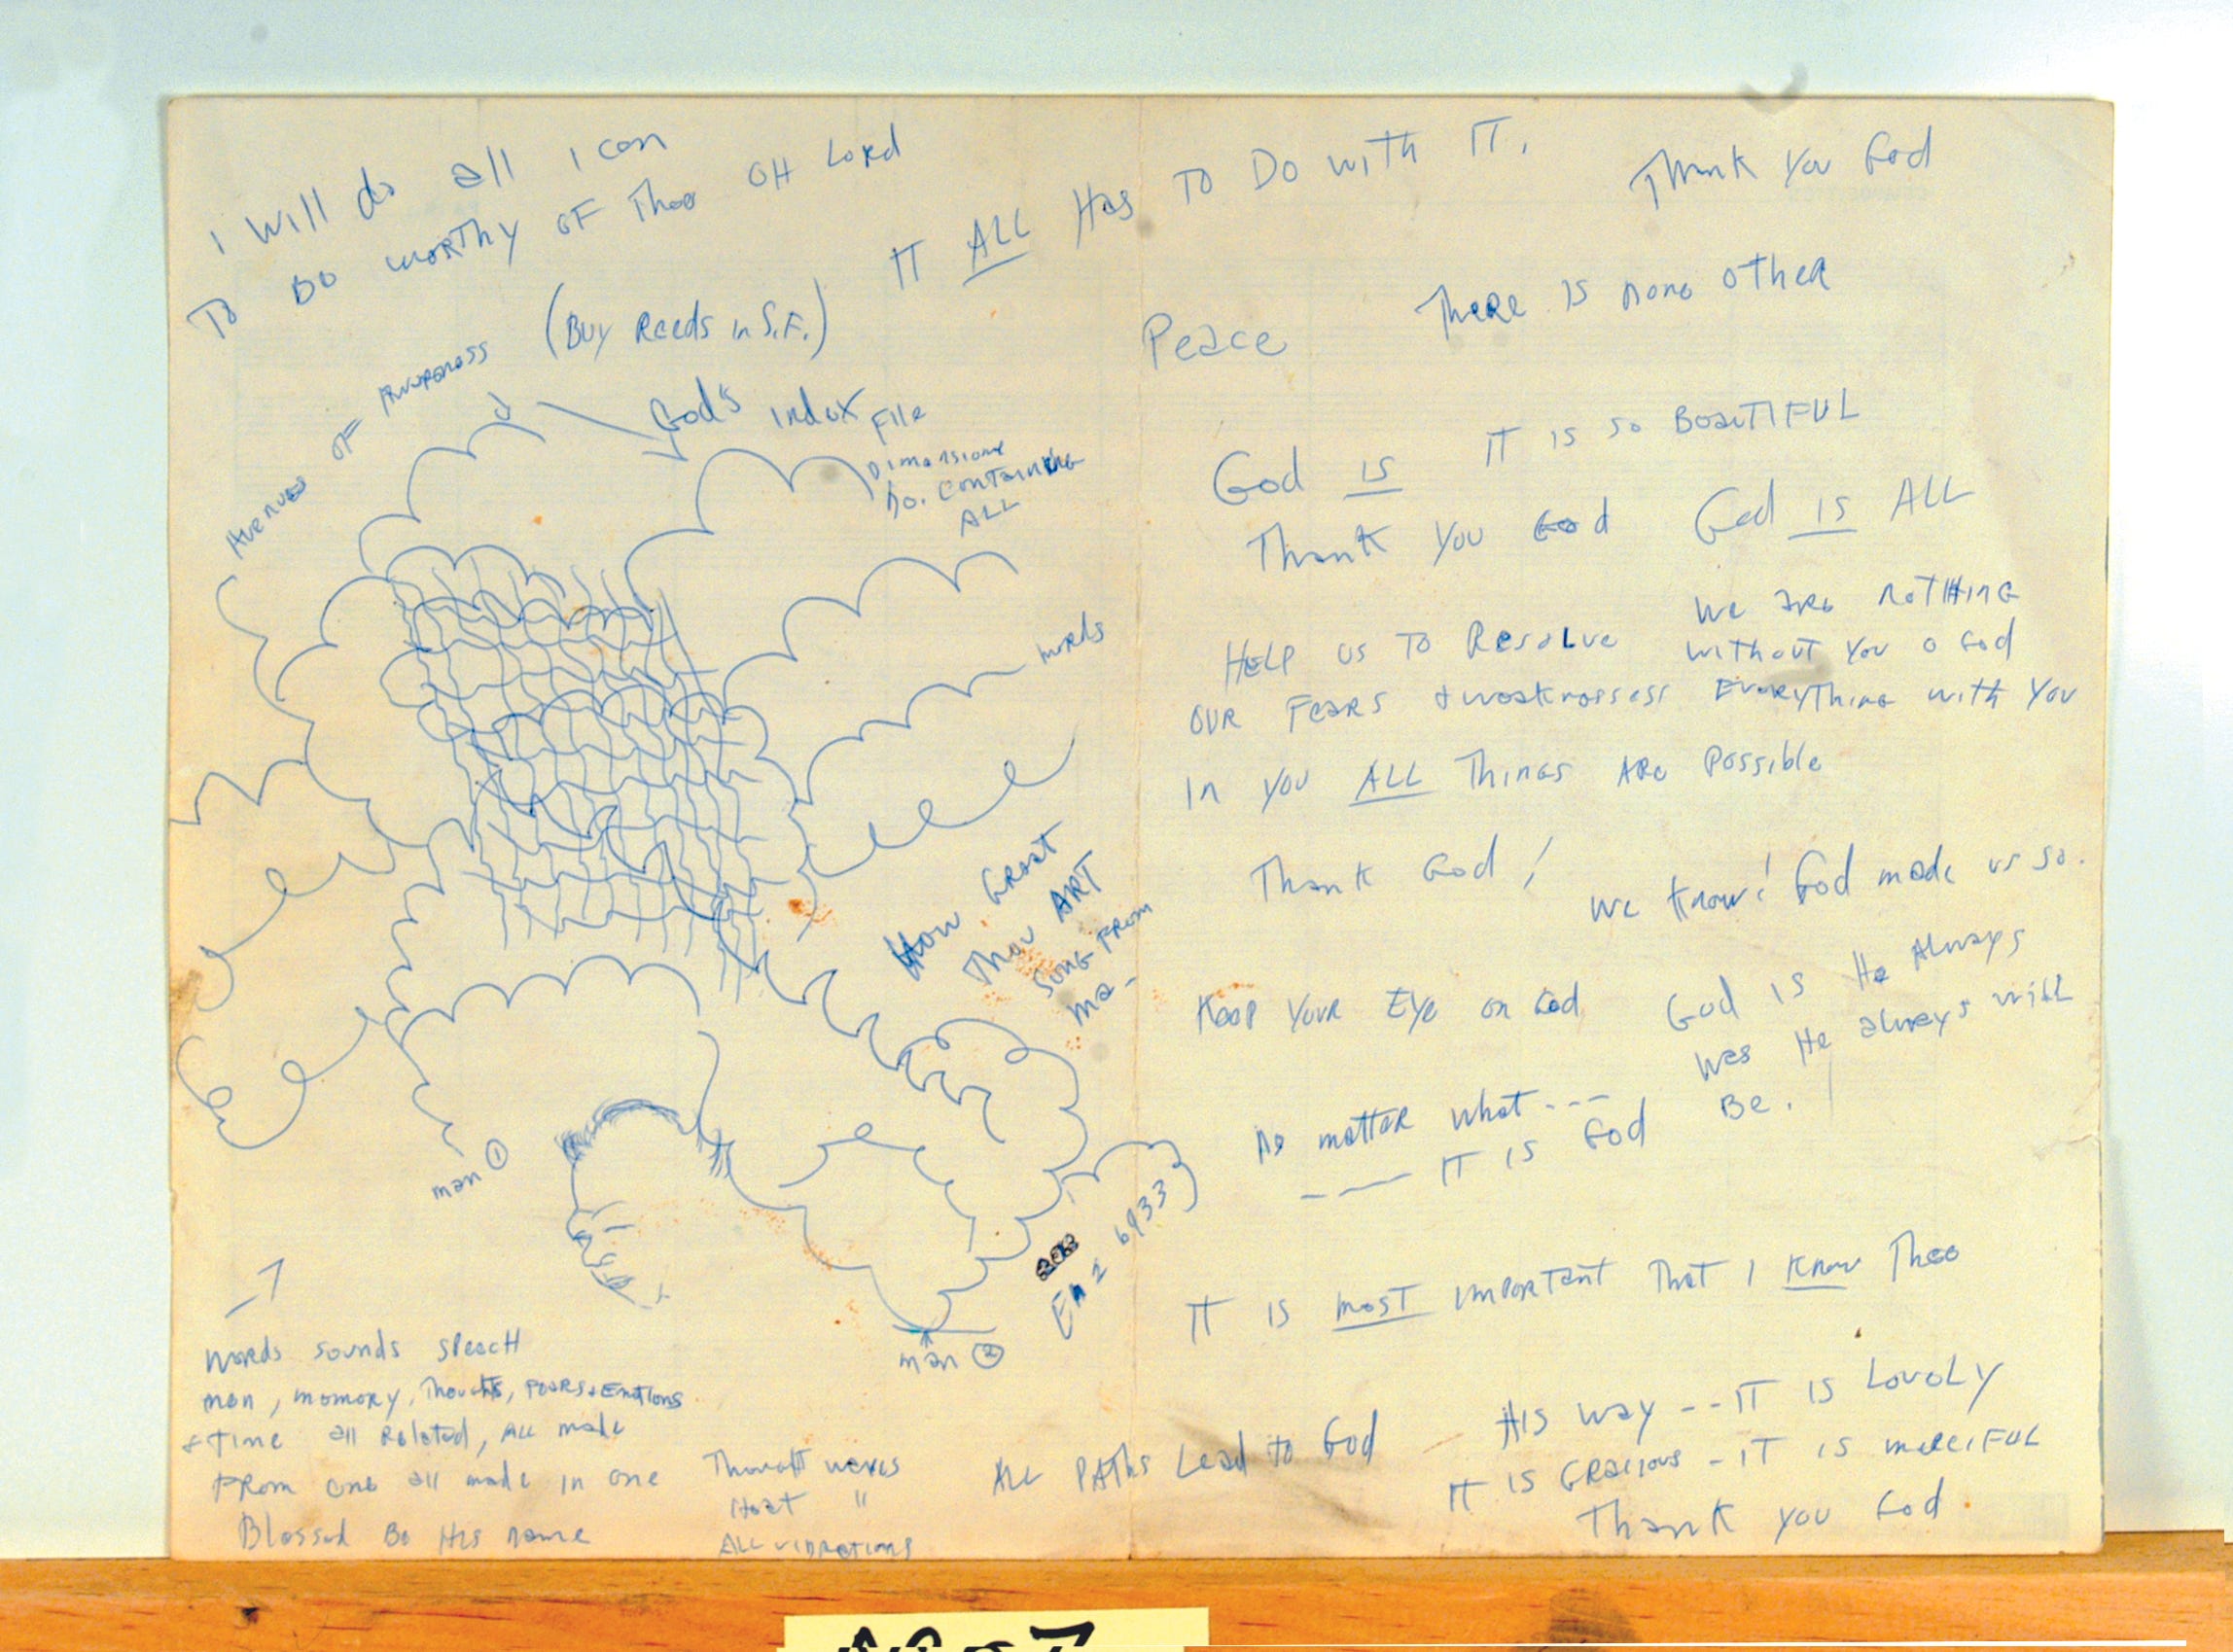 I will do all I can
To Be worthy OF Thee OH Lord
(Buy Reeds in S.F.)
IT ALL Has To Do with IT.
Thank You God
Peace
There is none other
Avenues OF Awareness
God's index File
Dimensions
no. containing
ALL
words
How Great
Thou ART
Song From
Ma-
man ①
EM 2 6933
man ②
Words sounds speech
men, memory, Thoughts, Fears & Emotions
& time all Related, ALL made
From one all made in one
Blessed Be His name
Thought waves
Heat "
ALL vibrations
ALL PATHs Lead to God
God is IT is so BeautiFUL
Thank You God God is ALL
Help us To Resolve We are noTHing
our Fears & weaknessess without You o God
Everything with You
In you ALL Things Are possible
Thank God!
We know! God made us so.
Keep Your Eye on God
God is He Always
was He always will
Be.
No matter what ---
---- IT is God
IT is most important That I Know Thee
His way -- IT is Lovely
IT is Gracious - IT is merciFUL
Thank you God.